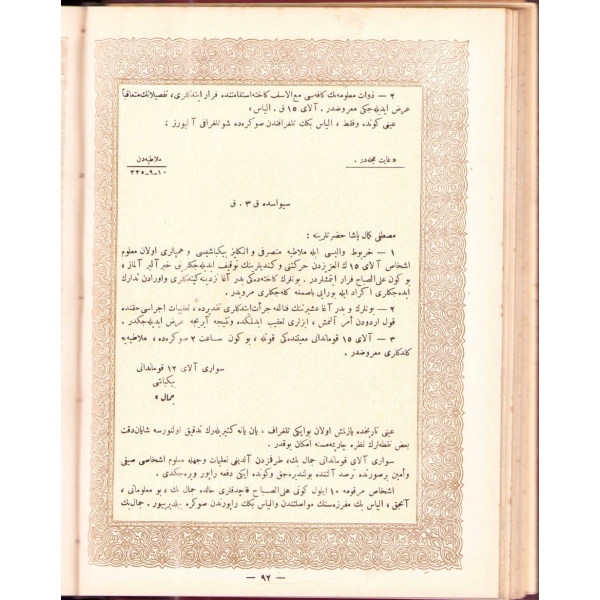 ٢ — ذوات معلومه‌نك كافه‌سی مع‌الاسف كاخته استقامتنده فرار ايتدكلری، تفصيلاتك متعاقباً
عرض ايديله‌جكی معروضدر. آلای ١٥ ق. الياس،
عينی كونده وفقط، الياس بكك تلغرافندن صوكره‌ده شو تلغرافی آليورز:
« غايت عجله‌در. ملاطيه‌دن
١٠-٩-٣٣٥
سيواسده ق ٣. ق
مصطفی كمال پاشا حضرتلرينه:
١ — خربوط واليسی ايله ملاطيه متصرفی و انكليز بيكباشيسی و همپالری اولان معلوم
اشخاص آلای ١٥ ك العزيزدن حركتنی و كنديلرينك توقيف ايديله‌جكلرينی خبر آلير آلماز،
بو كون علی‌الصباح فرار ايتمشلردر. بونلرك كاخته‌ده‌كی بدر آغا نزدينه كيتدكلری و اورادن تدارك
ايده‌جكلری اكراد ايله بورايی باصمغه كله‌جكلری مرويدر.
٢ — بونلرك و بدر آغا عشيرتنك فنالغه جرأت ايتدكلری تقديرده، تعقيبات اجراسی حقنده
قول اردودن أمر آلنمش، ايزلری تعقيب ايدلمكده و نتيجه آيريجه عرض ايديله‌جكدر.
٣ — آلای ١٥ قوماندانی معيتنده‌كی قوتله، بو كون ساعت ٢ صوكره‌ده، ملاطيه‌يه
كلدكلری معروضدر.
سواری آلای ١٢ قوماندانی
بيكباشی
جمال »
عينی تاريخده يازلمش اولان بو ايكی تلغراف، يان يانه كتيريله‌رك تدقيق اولنورسه شايان دقت
بعض نقطه‌لرك نظره چارپمامسنه امكان يوقدر.
سواری آلای قوماندانی جمال بك، طرفمزدن آلدينی تعليمات وجهله معلوم اشخاصی صيقی
وأمين برصورتده ترصد آلتنده بولنديره‌جق و كونده ايكی دفعه راپور ويره‌جكدی.
اشخاص مرقومه ١٠ ايلول كونی علی‌الصباح قاچدقلری حالده جمال بك، بو معلوماتی،
آنجق، الياس بك مفرزه‌سنك مواصلتندن والياس بكك راپورندن صوكره بيلديرييور. جمال بك
— ٩٢ —